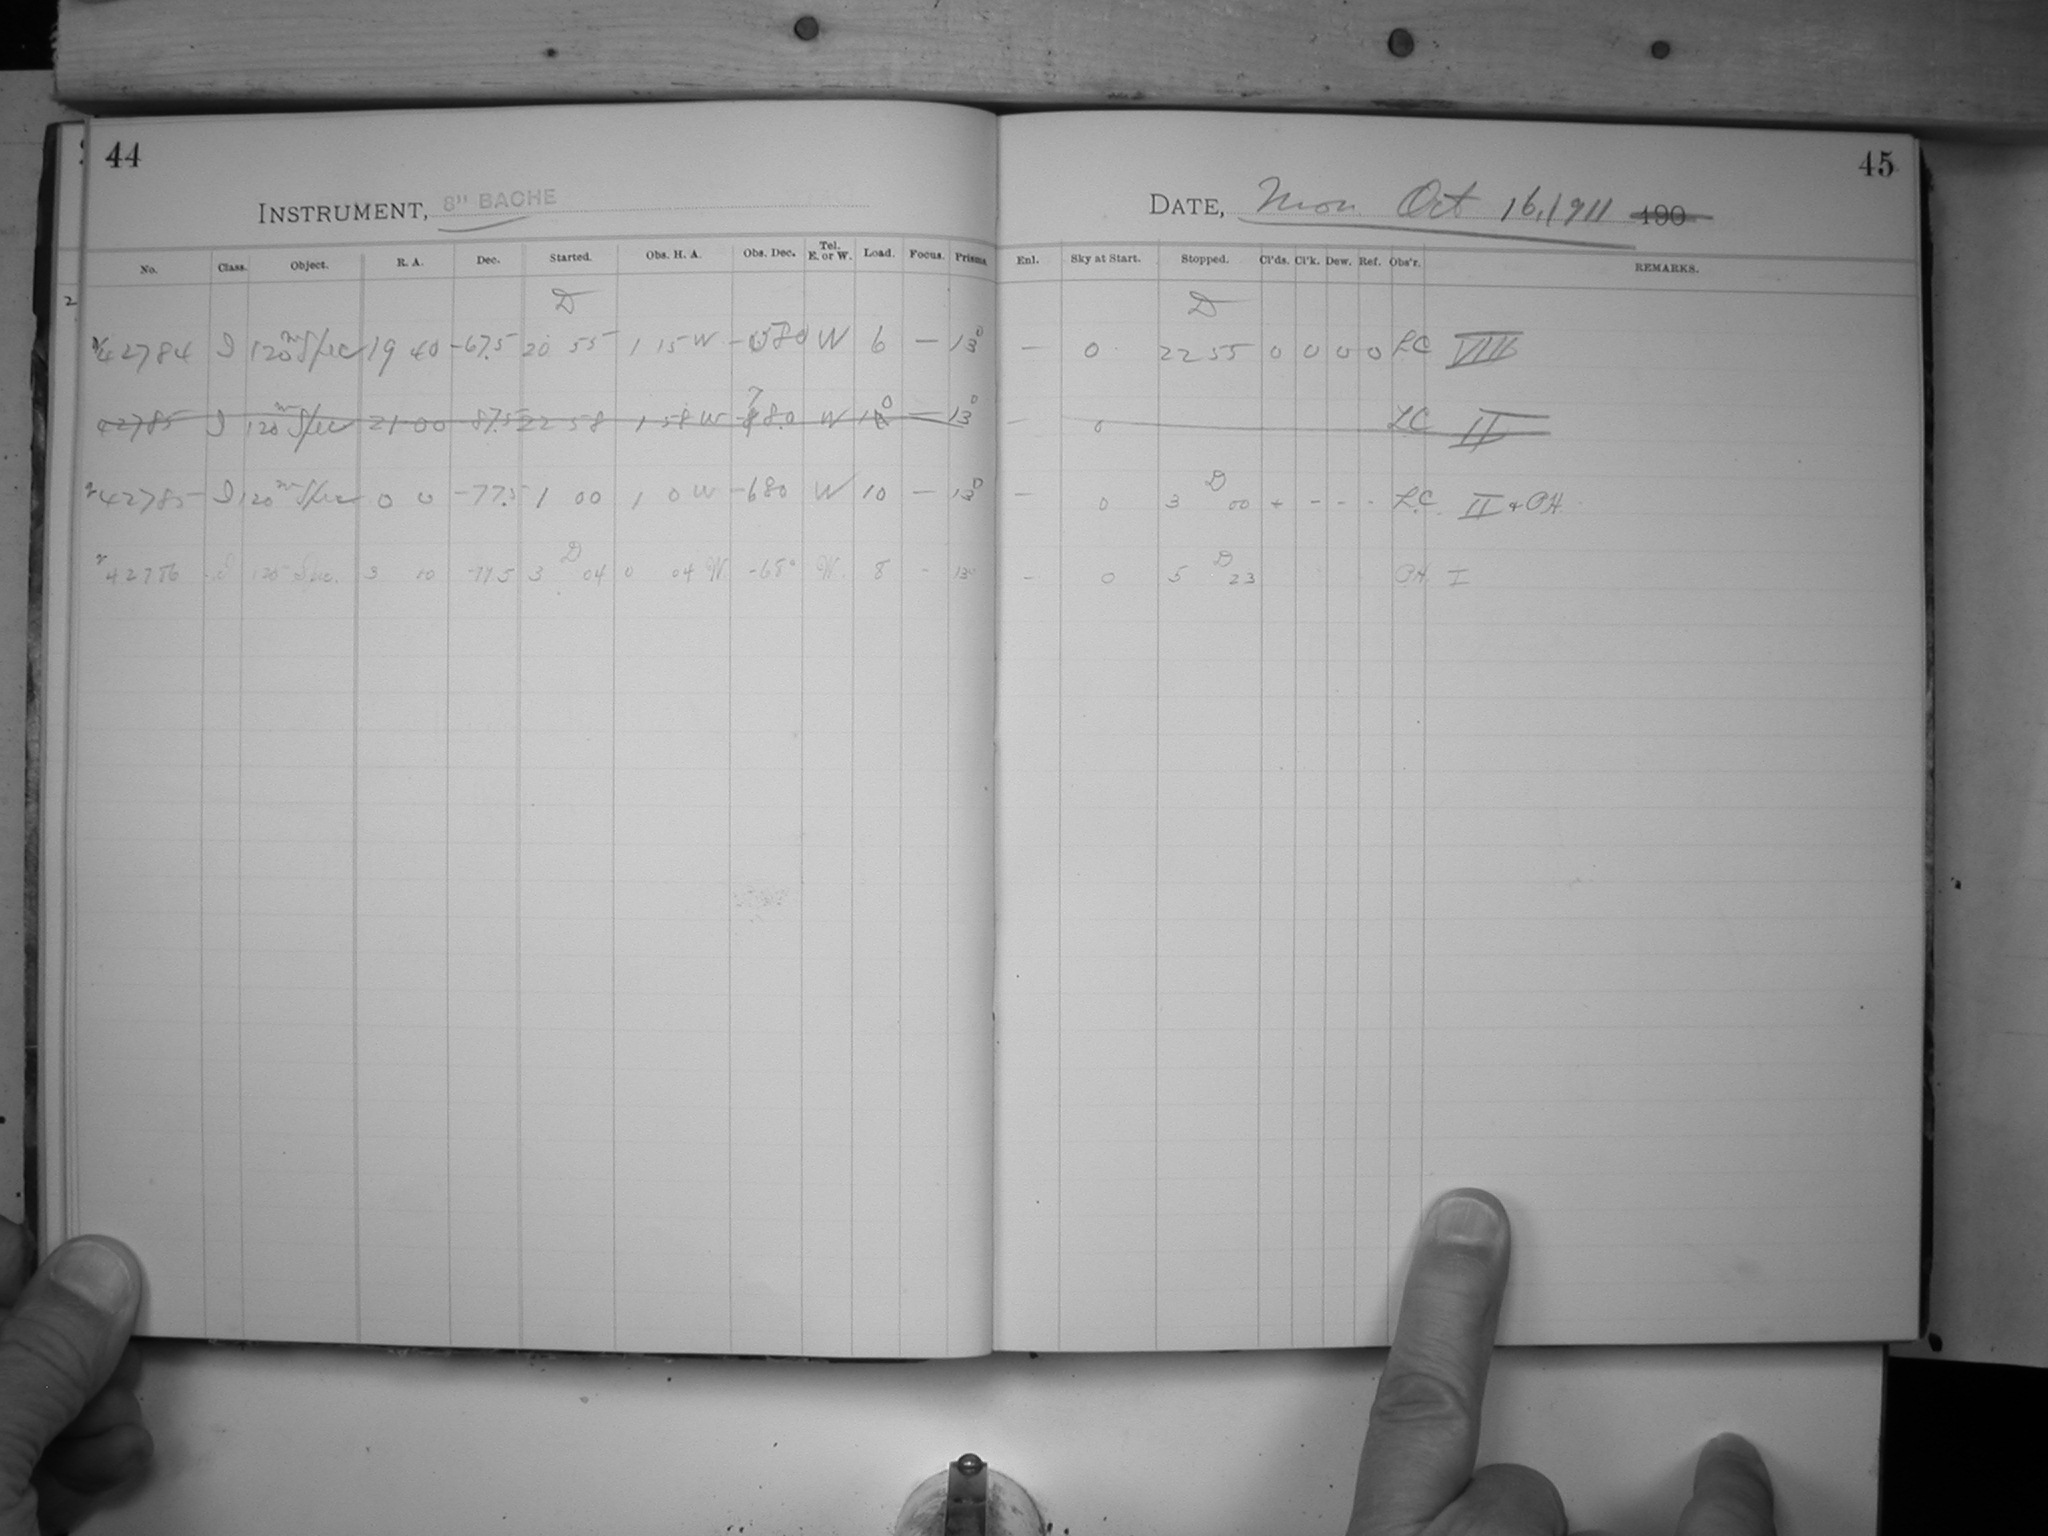 44
INSTRUMENT, 8" BACHE
No. Class. Object. R. A. Dec. Started. Obs. H. A. Obs. Dec. Tel. E. or W. Load. Focus. Prisms.
2
D
42784 I 120m Spec 19 40 -67.5 20 55 1 15 W -580 W 6 — 13°
42785 I 120m Spec 21 00 -87.5 22 58 1 58 W -78.0 W 10 — 13°
42785 I 120m Spec 0 0 -77.5 1 00 1 0 W -680 W 10 — 13°
D
42786 I 120 Spec. 3 10 -77.5 3 04 0 04 W. -68° W. 8 - 13°
45
DATE, Mon Oct 16, 1911 190
Enl. Sky at Start. Stopped. Cl'ds. Cl'k. Dew. Ref. Obs'r. REMARKS.
D
— 0 22 55 0 0 0 0 LC VIII
— 0 LC II
D
— 0 3 00 + - - - L.C. II & PH
D
- 0 5 23 PH I